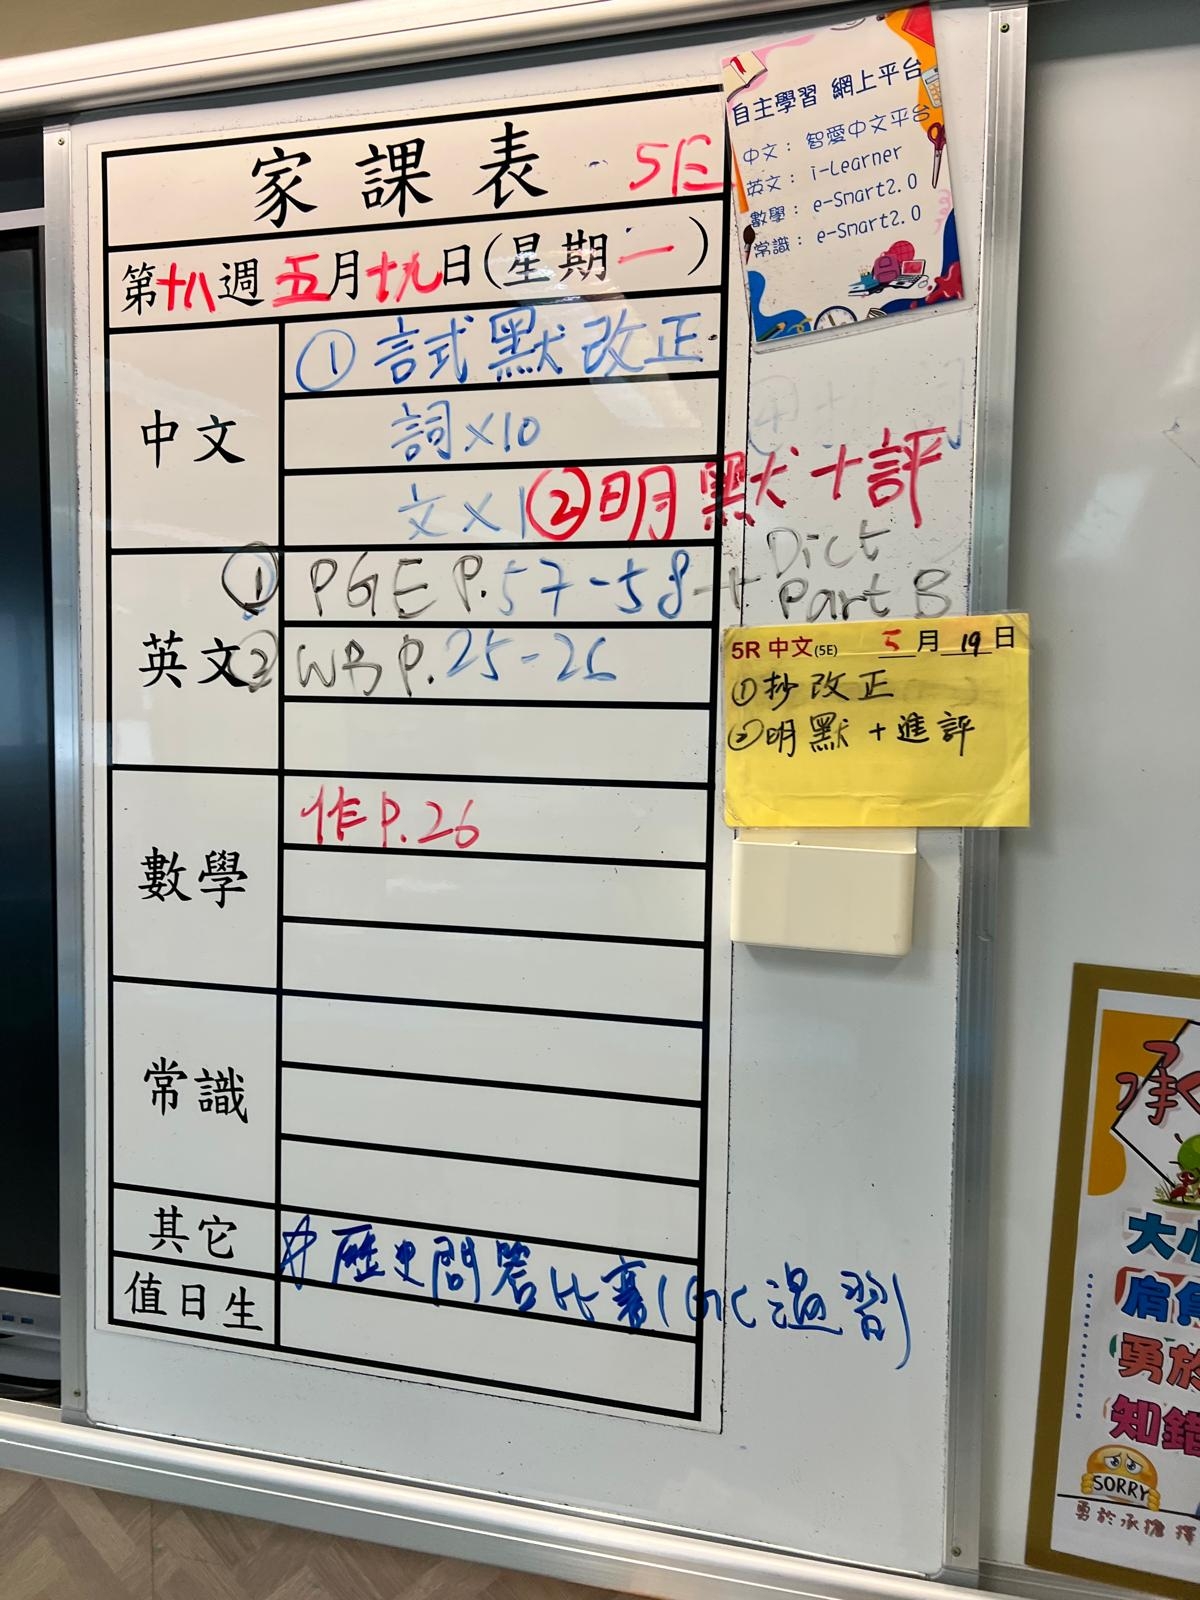 家課表 5E
第十八週 五月十九日(星期一)
中文
① 試默改正
詞×10
文×1 ②明默+評
英文
① PGE P.57-58 + Dict Part B
② WB P.25-26
數學
作P.26
常識
其它
歷史問答比賽(GC溫習)
值日生
1
自主學習 網上平台
中文： 智愛中文平台
英文： i-Learner
數學： e-Smart2.0
常識： e-Smart2.0
5R 中文(5E) 5月19日
①抄改正
②明默+進評
承
大
肩
勇於
知錯
SORRY
勇於承擔